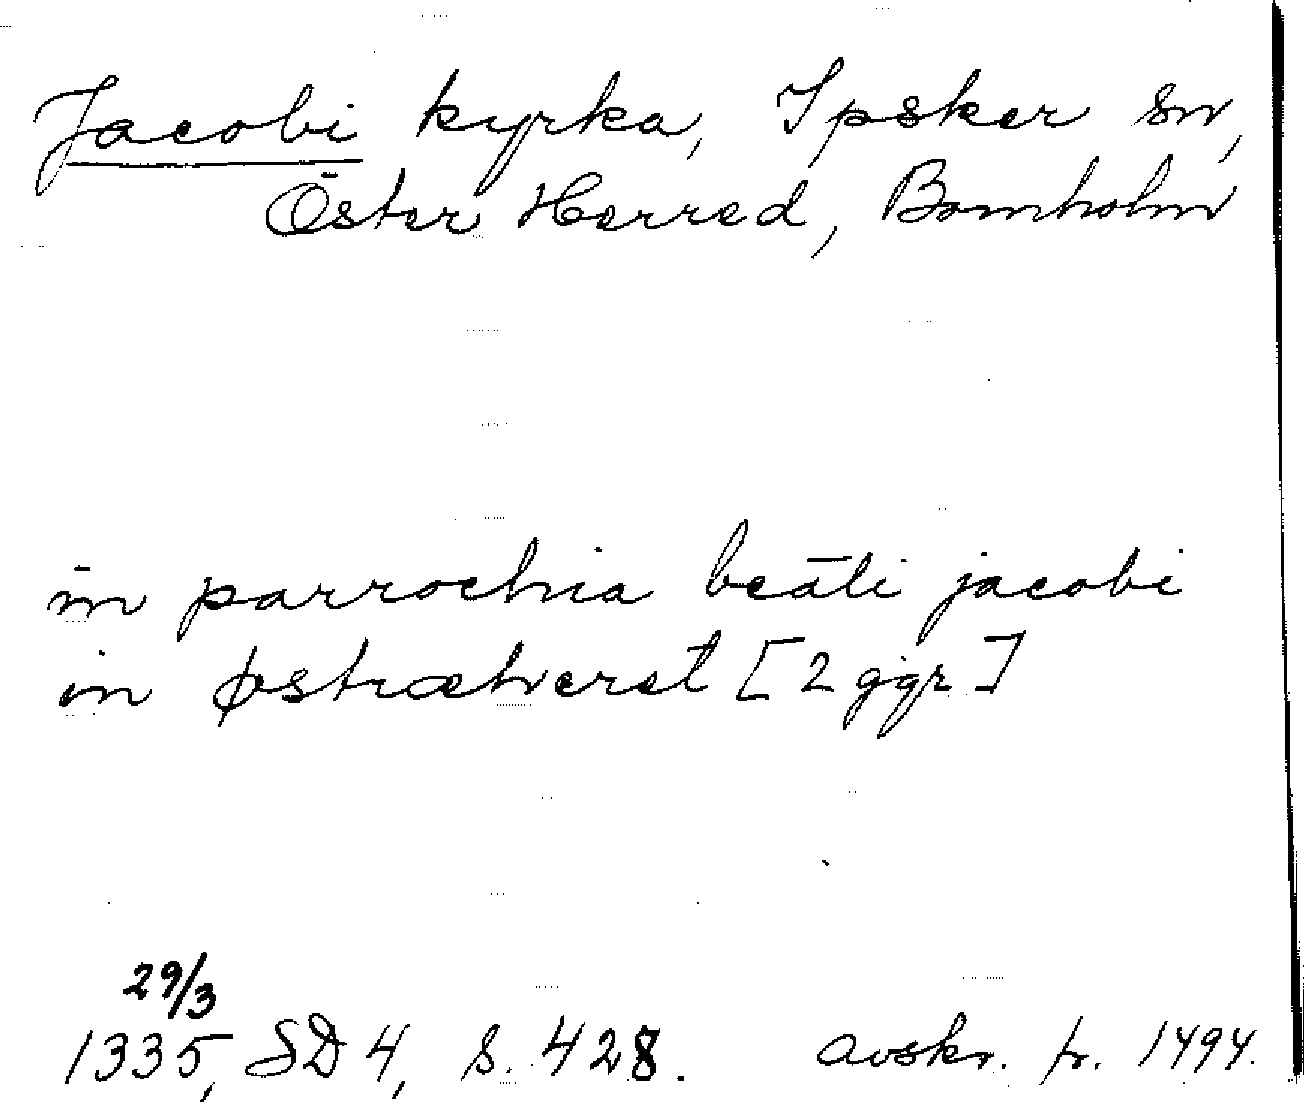 Jacobi kyrka, Ipsker sn,
Öster Herred, Bornholm
in parrochia beāti jacobi
in østræheret [2 ggr]
29/3
1335, SD 4, s. 428. avskr. fr. 1494.